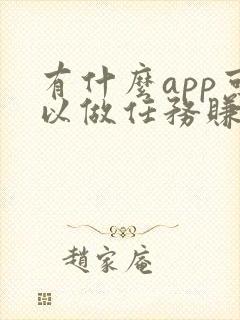 有什麼app可
以做任務賺
趙家庵